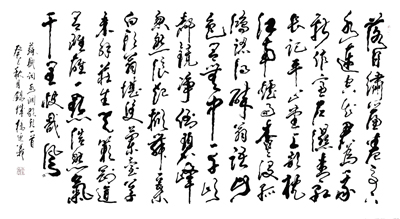 落日绣帘卷亭下
水连空知君为我
新作窗户湿青红
长记平山堂上欹枕
江南烟雨杳杳没孤
鸿认得醉翁语山
色有无中一千顷
都镜净倒碧峰
忽然浪起掀舞一叶
白头翁堪笑兰台公子
未解庄生天籁刚道
有雌雄一点浩然气
千里快哉风
苏轼词水调歌头一首
癸巳秋月